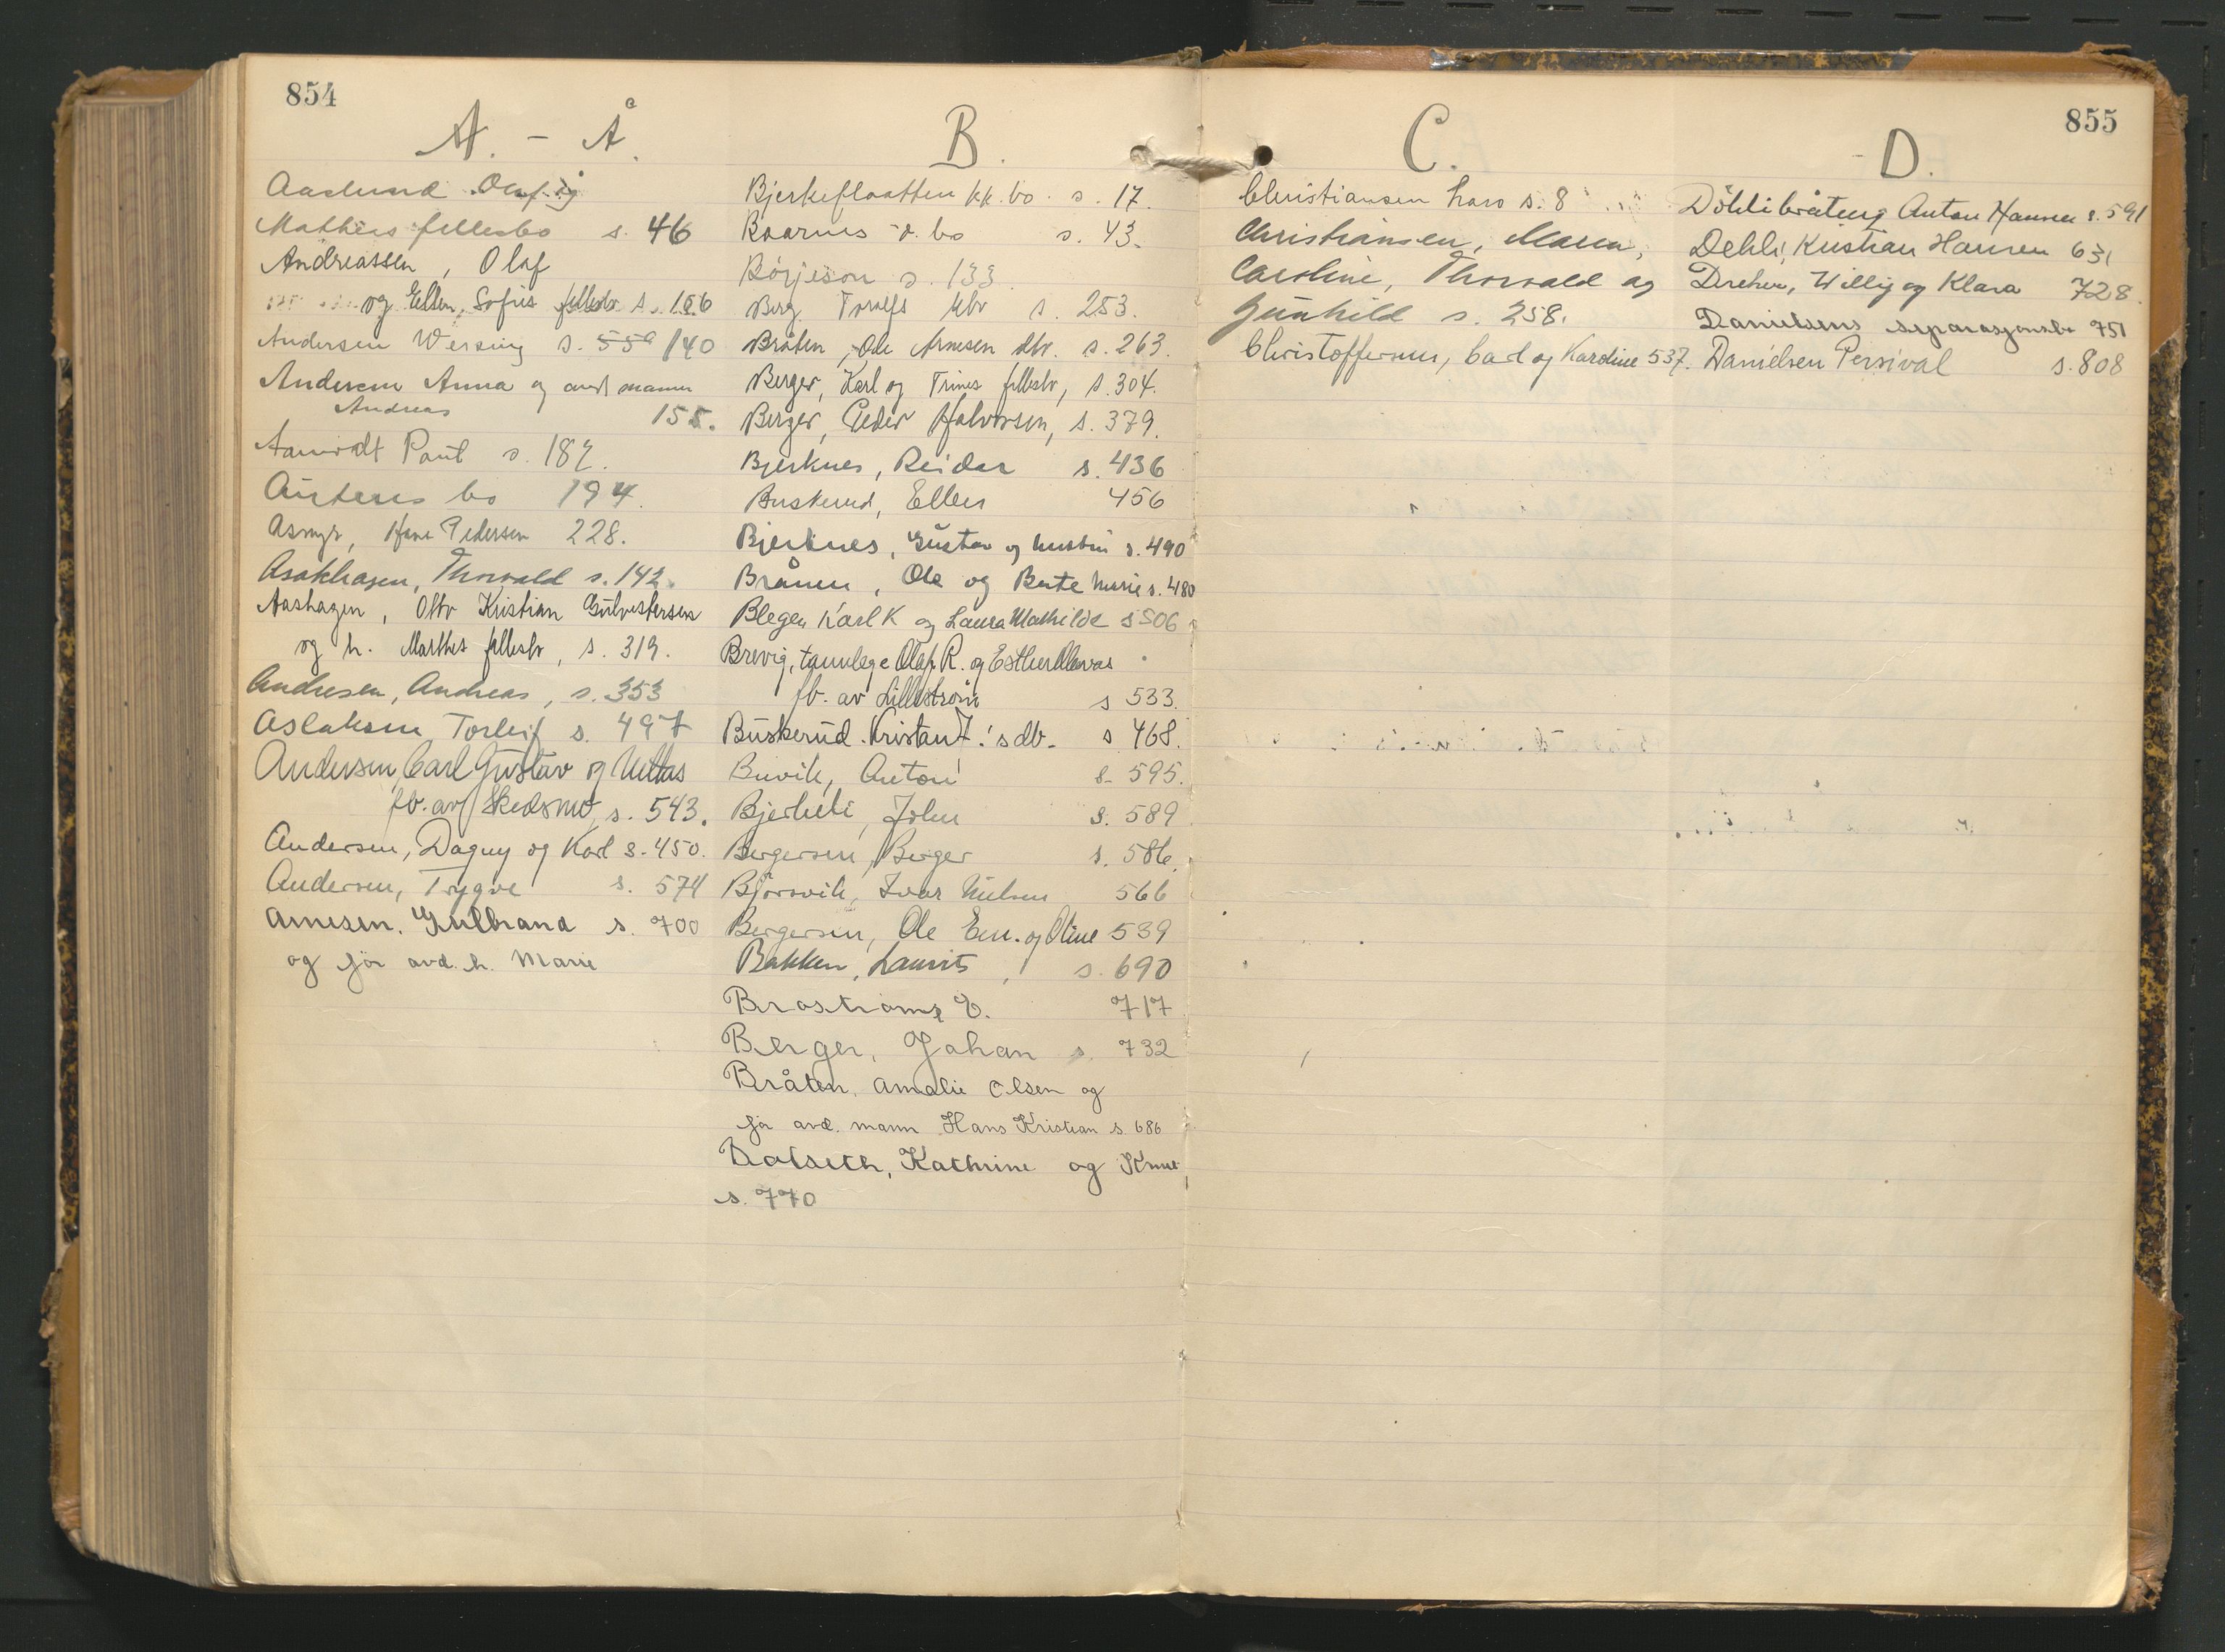 854
A. - Å.
Aaslund Olaf og
Mathias fellesbo s. 46
Andreassen, Olaf
og Ellen Sofies fellesbo s. 166
Andersen Wersing s. 140
Andersen Anna og avd. mann
Andreas 155.
Aamodt Paul s. 187.
bo 194.
Asmyr, Hans Pedersen 228.
Asakhagen, Thorvald s. 142.
Aashagen, Otto Kristian Gulventsen
og h. Marthes fellesbo, s. 319.
Andresen, Andreas, s. 353
Aslaksen Torleif s. 497
Andersen, Carl Gustav og Uttas
fb. av Skedsmo, s. 543.
Andersen, Dagny og Karl s. 450.
Andersen, Trygve s. 574
Arnesen, Gulbrand s. 700
og før avd. h. Marie
B.
Bjerkeflaatten kk. bo s. 17.
bo s. 43.
Börjeson s. 133.
Berg Toralfs kbo s. 253.
Bråten, Ole Arnesen dbo. s. 263.
Berger, Karl og Trines fellesbo, s. 304.
Berger, Peder Halvorsen, s. 379.
Bjerknes, Reidar s. 436
Buskerud, Ellen 456
Bjerknes, Gustav og hustru s. 490
Brånen, Ole og Berte Marie s. 480
Blegen Karl K og Laura Mathilde s 506
Brevig, tannlege Olaf R. og Esther
fb. av Lillestrøm s 533.
Buskerud Kristan J.'s db. s 468.
Buvik, Anton s. 595.
Bjerkeli, John s. 589
Bergersen, Berger s. 586.
Bjørsvik, Ivar Nielsen 566
Bergersen, Ole Em. og Oline 539
Bakken, Laurits, s. 690
Brostrøms, E. 717
Berger, Johan s. 732
Bråten, Amalie Olsen og
før avd. mann Hans Kristian s 686
Bolseth, Kathrine og Knut
s. 770
855
C.
Christiansen Lars s. 8
Christiansen, Maren,
Caroline, Thorvald og
Gunhild s. 258.
Christoffersen, Carl og Karoline 537.
D.
Döhlibråteng Anton Hansen s. 591
Dehli, Kristian Hansen 631
Dreher, Willy og Klara 728.
Danielsens separasjonsbo 751
Danielsen Persival s. 808